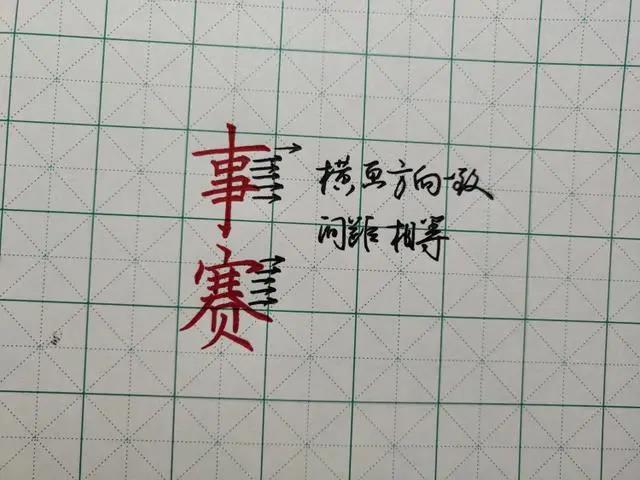 事赛
横画方向一致
间距相等